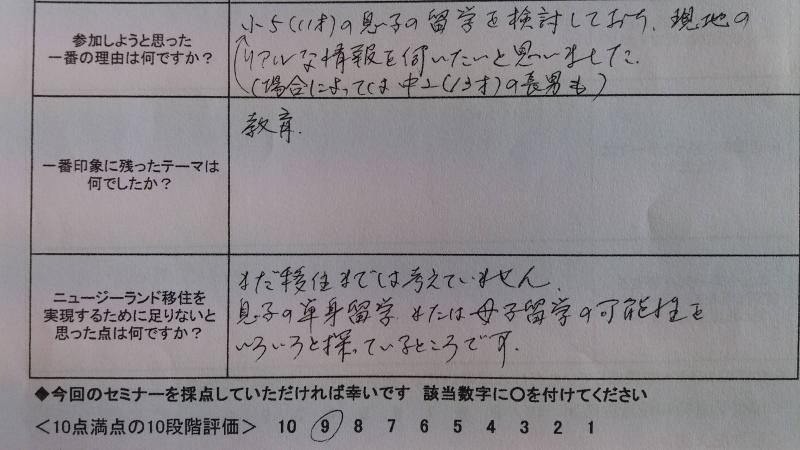 参加しようと思った
一番の理由は何ですか？
小5(11才)の息子の留学を検討しており、現地の
リアルな情報を伺いたいと思いました。
(場合によっては中1(13才)の長男も)
一番印象に残ったテーマは
何でしたか？
教育.
ニュージーランド移住を
実現するために足りないと
思った点は何ですか？
まだ移住までは考えていません.
息子の単身留学、または母子留学の可能性を
いろいろと探っているところです.
◆今回のセミナーを採点していただければ幸いです 該当数字に〇を付けてください
＜10点満点の10段階評価＞ 10 9 8 7 6 5 4 3 2 1